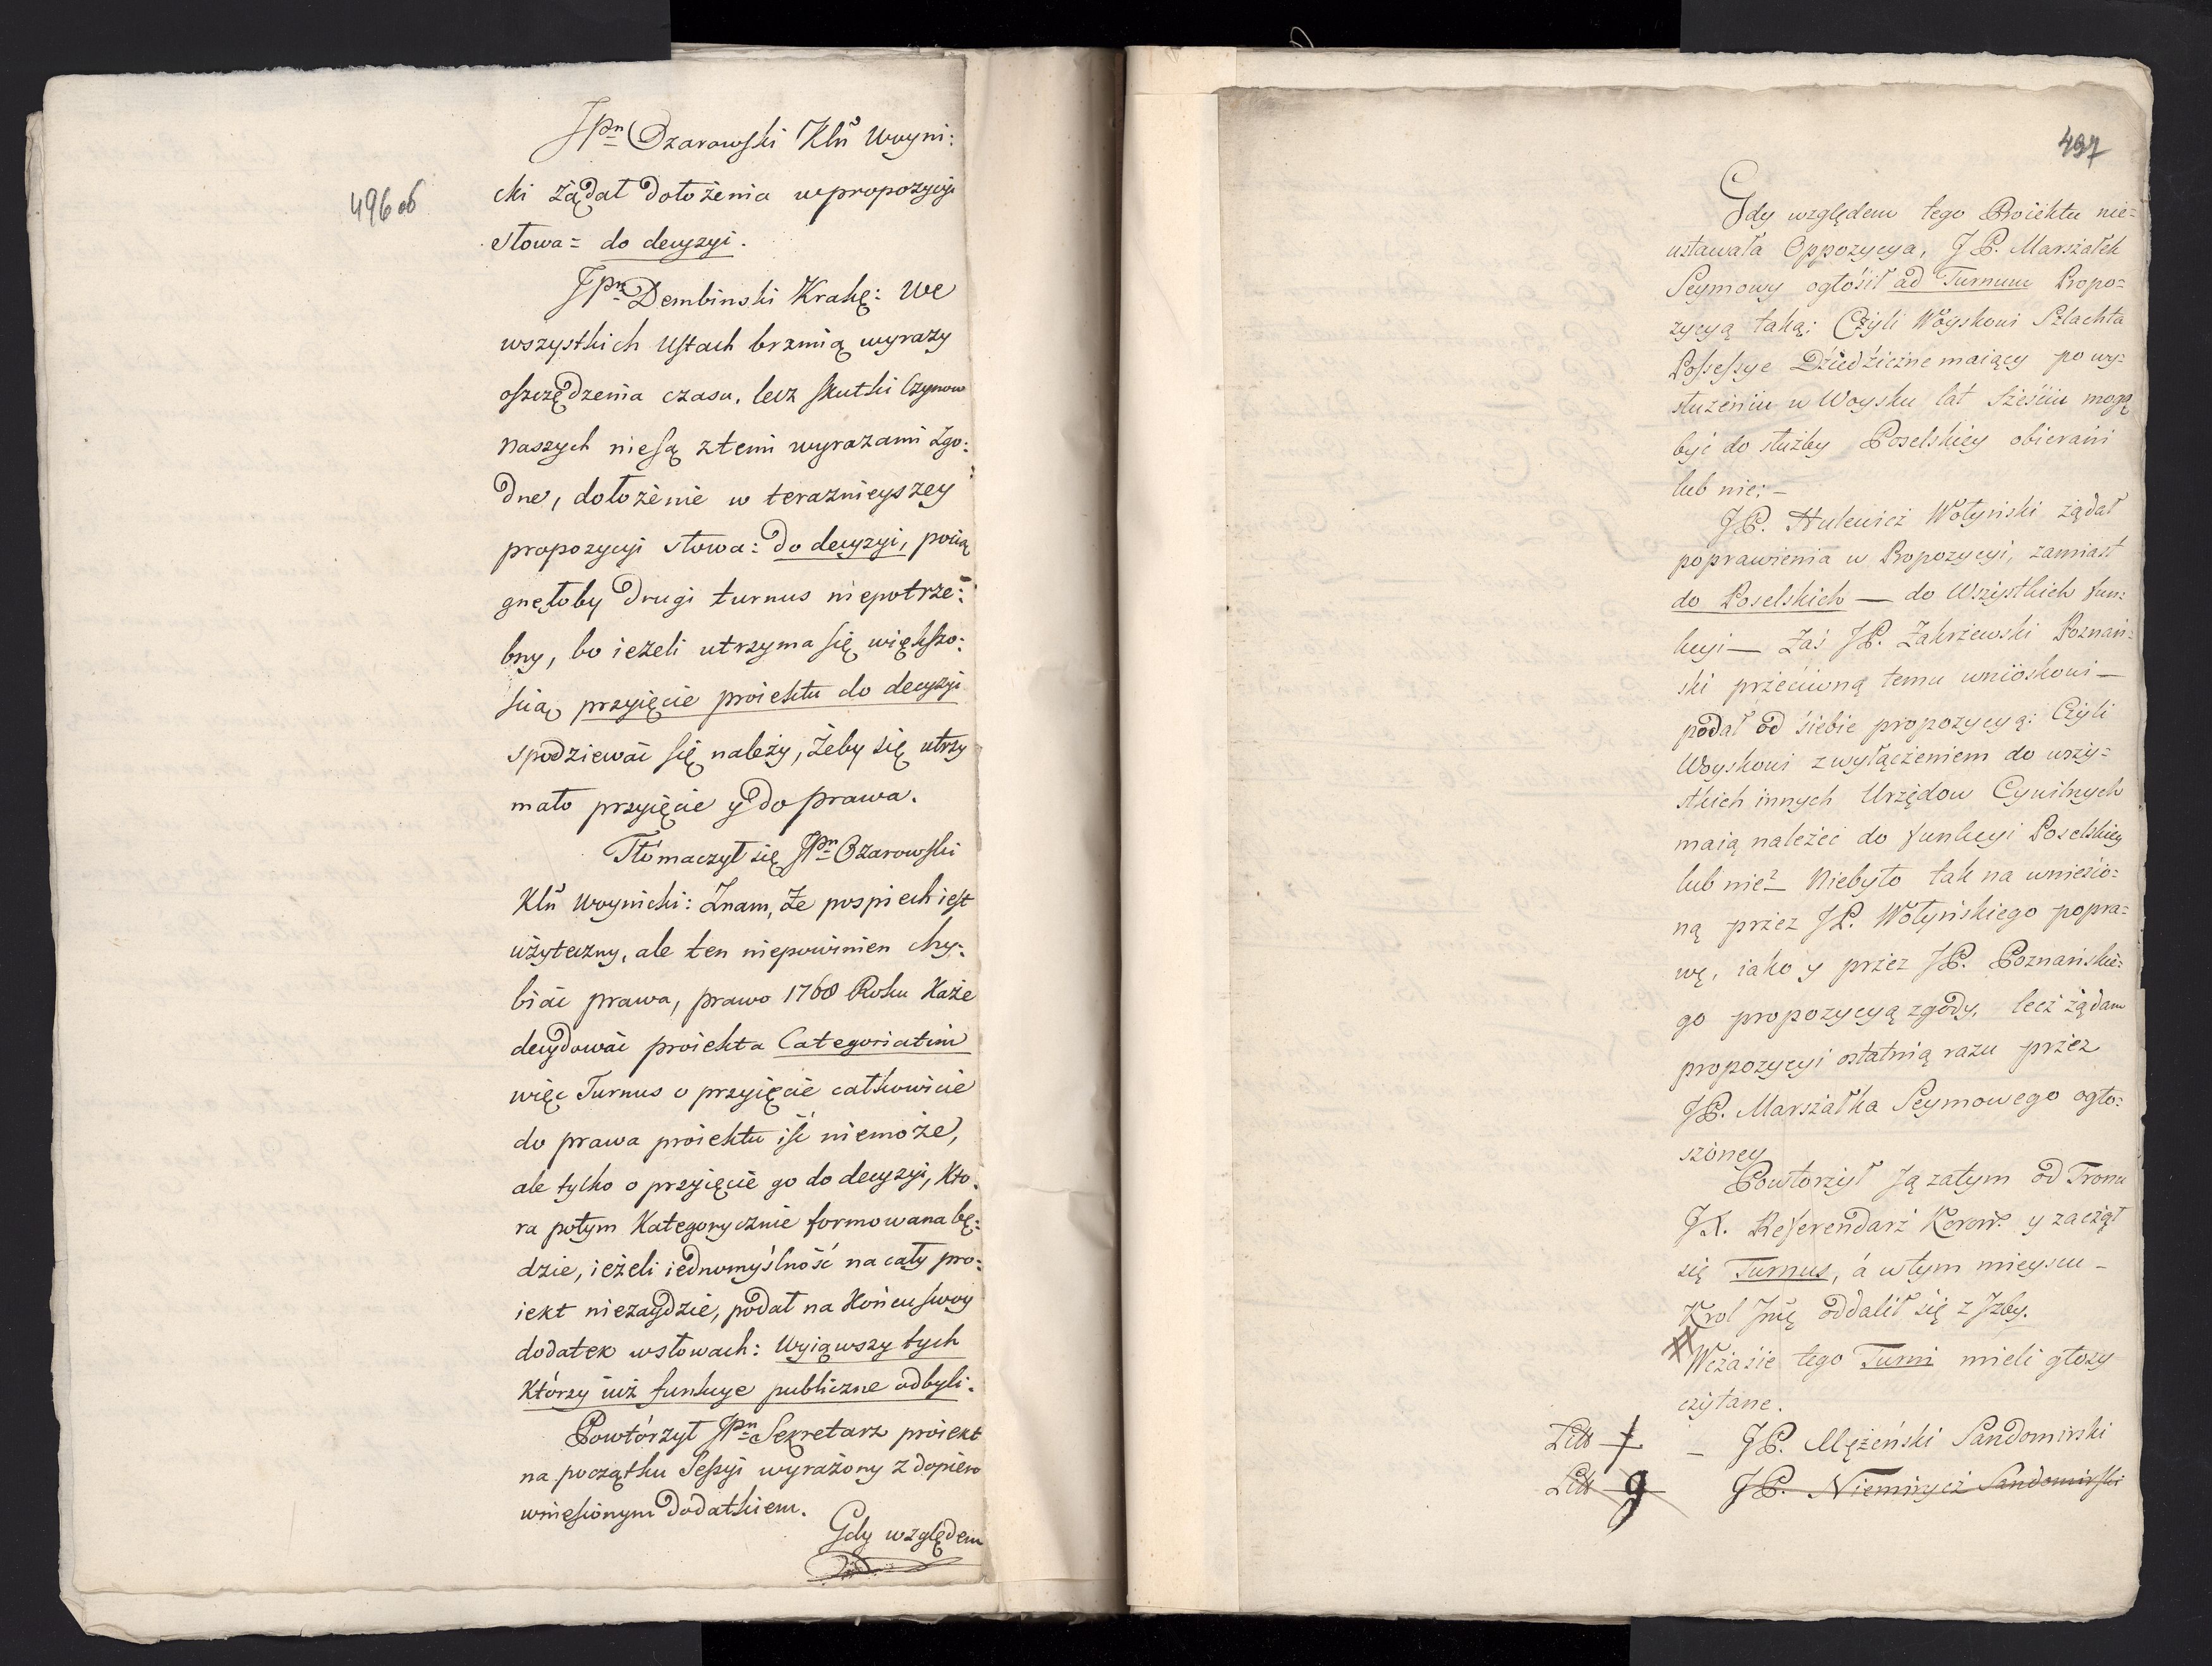 496 ob
JPn Ozarowski Kłn Woyni:
cki żądał dołożenia w propozycyi
słowa= do decyzyi.
JPn Dembinski Krakę: We
wszystkich Ustach brzmią wyrazy
oszczędzenia czasu, lecz skutki Czynow
naszych niesą z temi wyrazami zgo:
dne, dołożenie w teraznieyszey
propozycyi słowa: do decyzyi, pocią
gnęłoby drugi turnus niepotrze:
bny, bo ieżeli utrzyma się większo:
ścią przyięcie proiektu do decyzyi
spodziewać się należy, żeby się utrzy
mało przyięcie y do prawa.
Tłómaczył się JPn Ozarowski
Kłn Woynicki: Znam, że pospiech iest
użyteczny, ale ten niepowinien chy:
biać prawa, prawo 1768 Roku Każe
decydować proiekta Categoriatim
więc Turnus o przyięcie całkowicie
do prawa proiektu iść niemoże,
ale tylko o przyięcie go do decyzyi, Kto:
ra potym Kategorycznie formowana bę:
dzie, ieżeli iednomyślność na cały pro:
iekt niezaydzie, podał na Końcu swoy
dodatek w słowach: Wyiąwszy tych
Którzy iuż funkcye publiczne odbyli.
Powtórzył JPn Sekretarz proiekt
na początku Sessyi wyrażony z dopiero
wniesionym dodatkiem.
Gdy względem
497
Gdy względem tego Proiektu nie=
ustawała Oppozycya, JP. Marszałek
Seymowy ogłosił ad Turnum Propo=
zycyą taką: Czyli Woyskowi Szlachta
Possessye Dziedziczne maiący po wy=
służeniu w Woysku lat sześciu mogą
być do służby Poselskiey obierani
lub nie: –
JP. Hulewicz Wołyński żądał
poprawienia w Propozycyi, zamiast
do Poselskich — do Wszystkich fun:
kcyi — Zaś JP. Zakrzewski Poznań=
ski przeciwną temu wnioskowi —
podał od siebie propozycyą: Czyli
Woyskowi z wyłączeniem do wszy=
stkich innych Urzędow Cywilnych
maią należeć do funkcyi Poselskiey
lub nie? — Niebyło tak na wniesio=
ną przez JP. Wołyńskiego popra=
wę, iako y przez JP. Poznańskie=
go propozycyą zgody, lecz żądano
propozycyi ostatnią razu przez
JP. Marszałka Seymowego ogło=
szoney
Powtorzył Ją zatym od Tronu
JP. Referendarz Koron: y zaczął
się Turnus, á w tym mieyscu –
Krol Jmć oddalił się z Jzby.
Wczasie tego Turni mieli głosy
czytane.
Litt f – JP. Mężeński Sandomirski
Litt g JP. Niemirycz Sandomirski